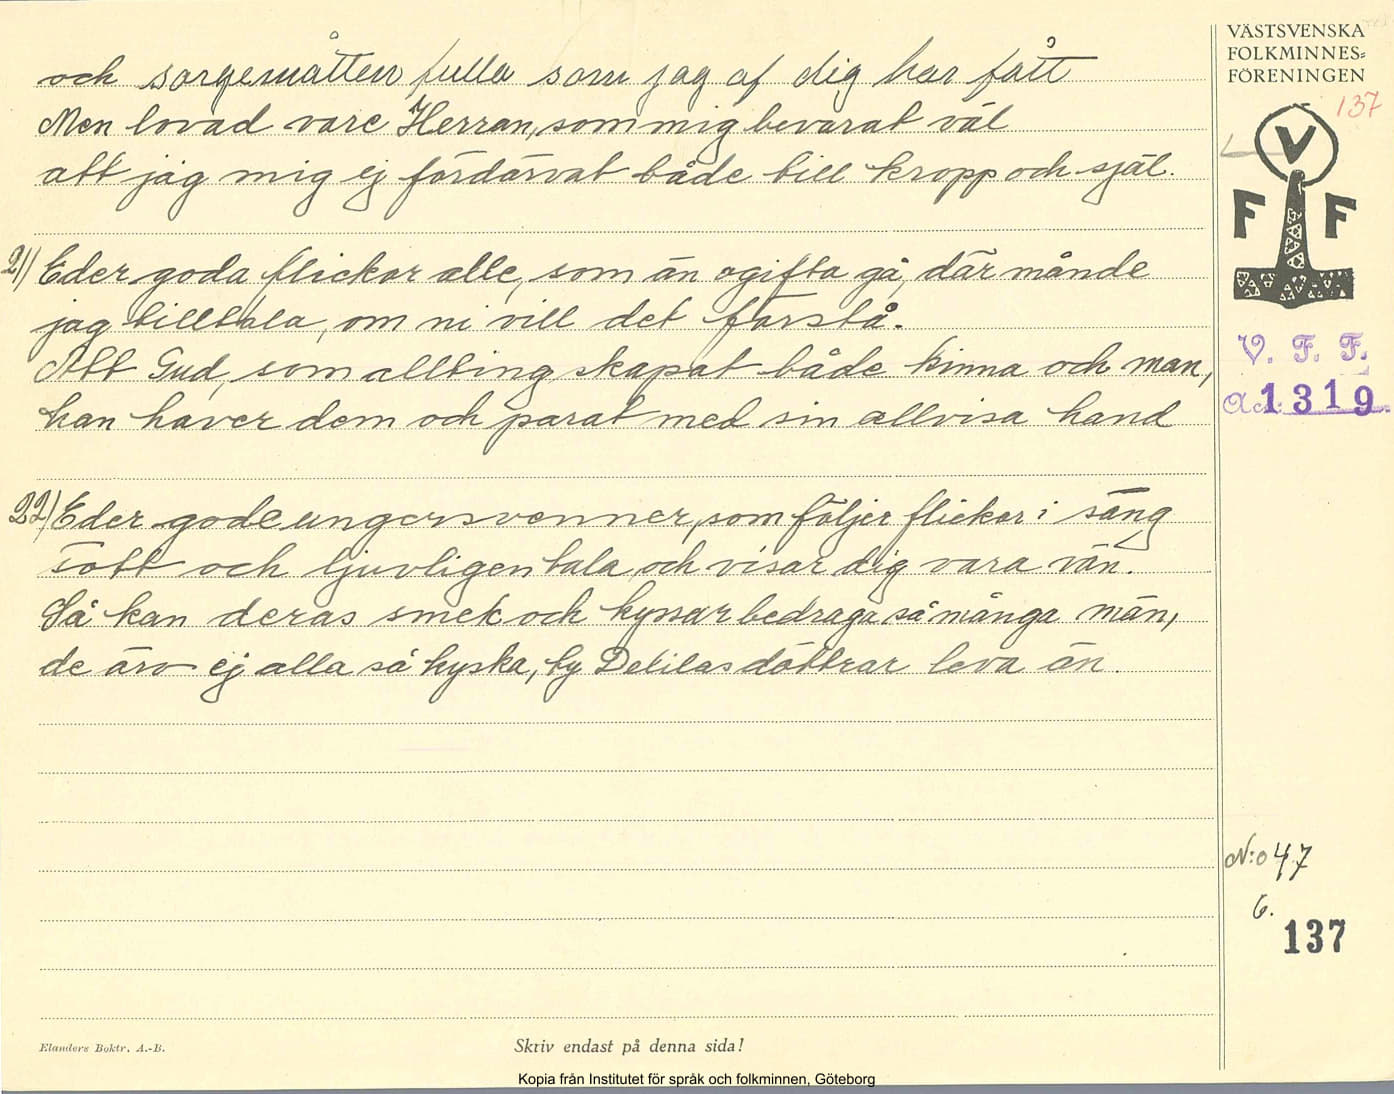 och sorgemåtten fulla som jag af dig har fått
Men lovad vare Herran, som mig bevarat väl
att jag mig ej fördärvat både till kropp och själ.
21) Eder goda flickor alle, som än ogifta gå, där månde
jag tilltala, om ni vill det förstå.
Att Gud, som allting skapat både kinna och man,
han haver dem och parat med sin allvisa hand
22) Eder gode ungersvenner, som följer flickor i säng
sött och ljuvligen tala och visar dig vara vän.
Så kan deras smek och kyssar bedraga så många män,
de äro ej alla så kyska, ty Delilas döttrar leva än.
VÄSTSVENSKA
FOLKMINNES=
FÖRENINGEN
137
V
F F
V. F. F.
Acc. 1319
N:o 47
6.
137
Elanders Boktr. A.-B.
Skriv endast på denna sida!
Kopia från Institutet för språk och folkminnen, Göteborg